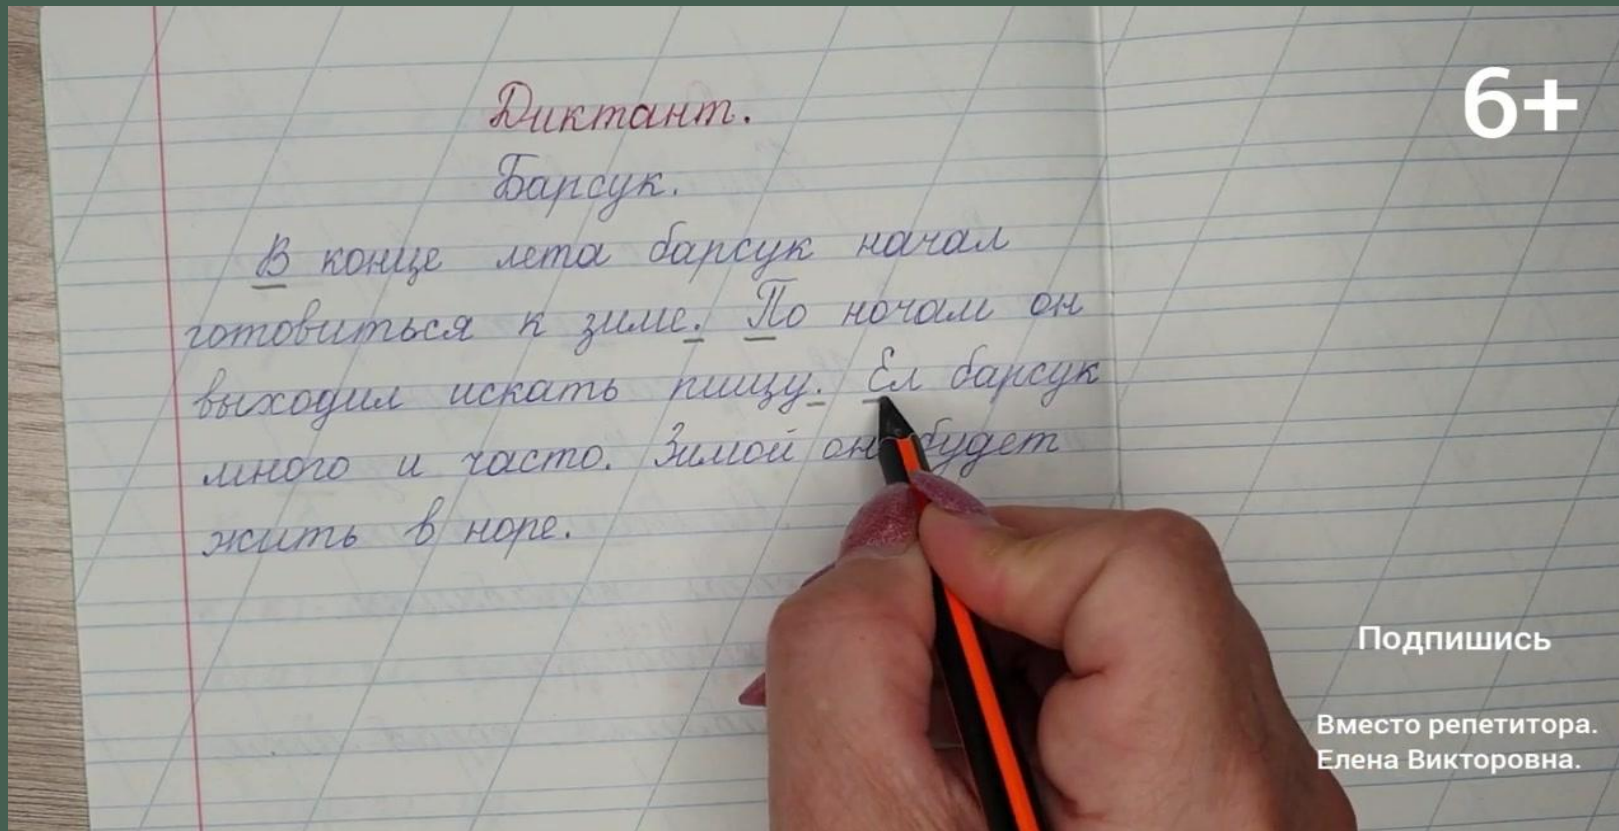 6+
Диктант.
Барсук.
В конце лета барсук начал
готовиться к зиме. По ночам он
выходил искать пищу. Ел барсук
много и часто. Зимой он будет
жить в норе.
Подпишись
Вместо репетитора.
Елена Викторовна.